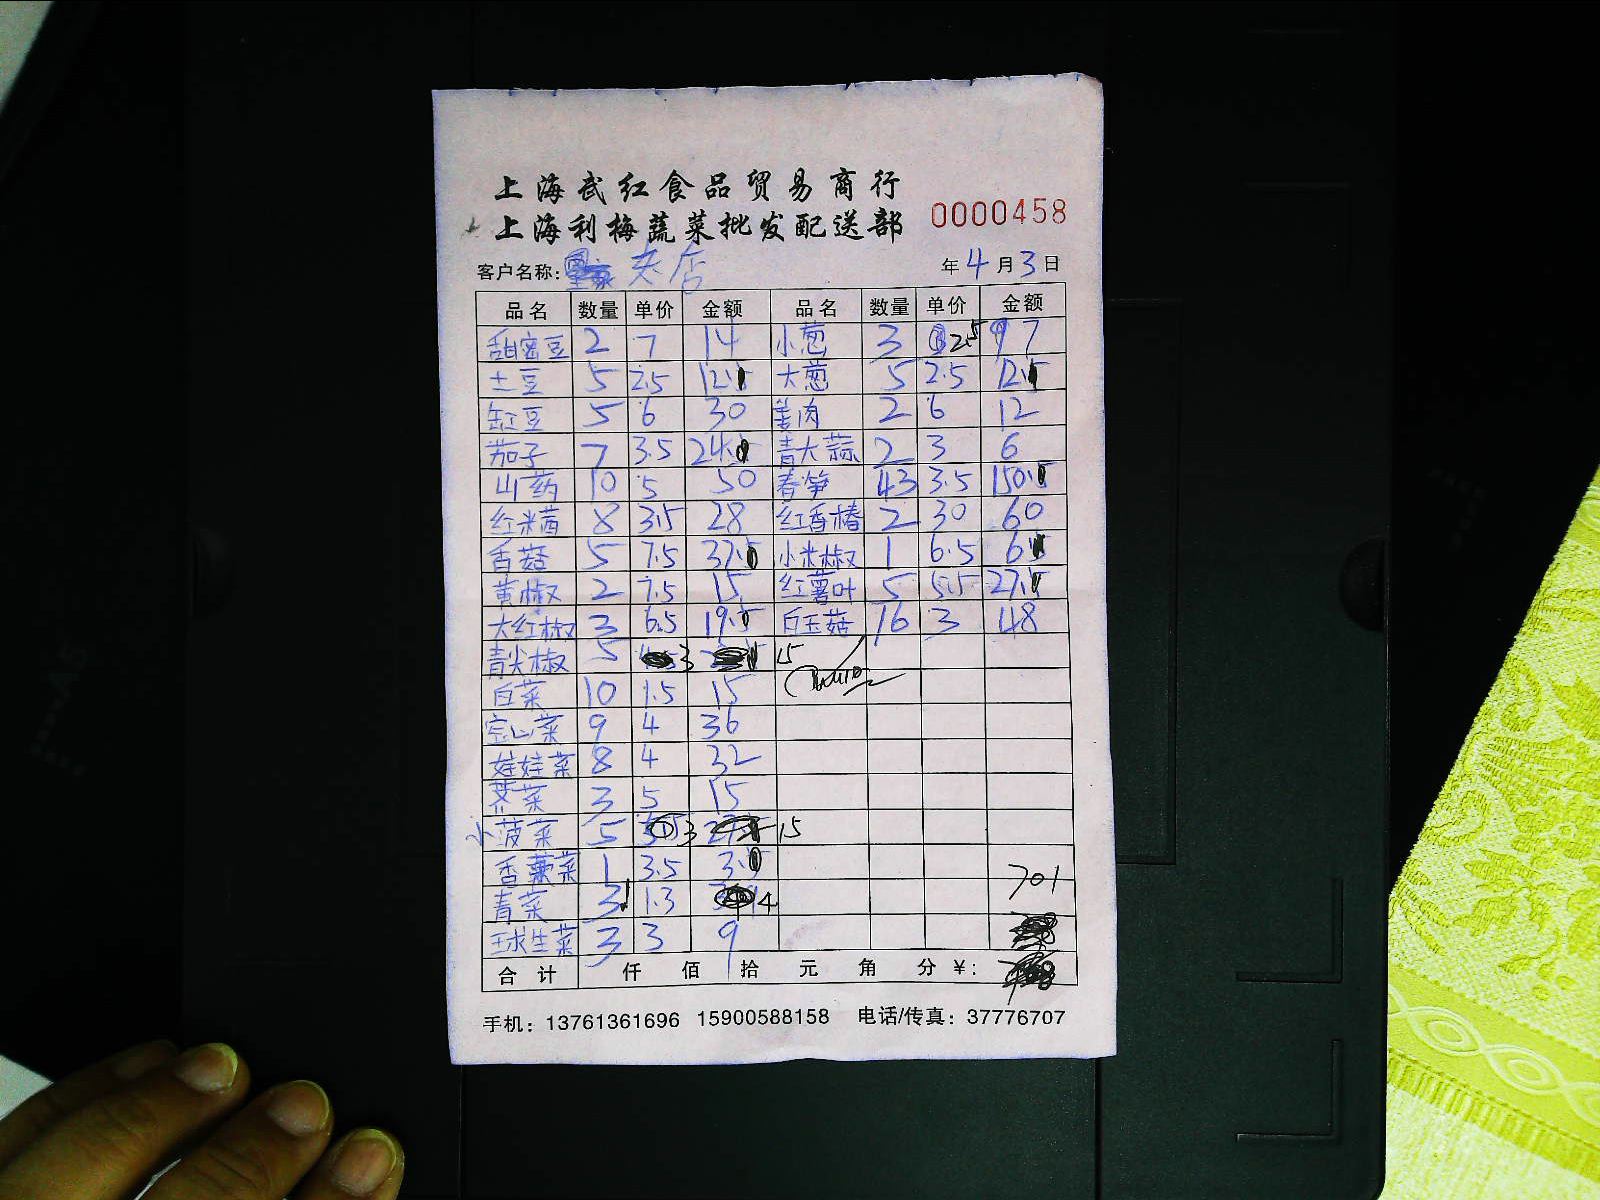 上海武红食品贸易商行
上海利梅蔬菜批发配送部 0000458
客户名称: 夹店 年 4 月 3 日
品名 数量 单价 金额 品名 数量 单价 金额
甜密豆 2 7 14 小葱 3 2.5 7
土豆 5 2.5 12. 大葱 5 2.5 12.
缸豆 5 6 30 姜肉 2 6 12
茄子 7 3.5 24. 青大蒜 2 3 6
山药 10 5 50 春笋 43 3.5 150.
红米苋 8 3.5 28 红香椿 2 30 60
香菇 5 7.5 37. 小米椒 1 6.5 6
黄椒 2 7.5 15 红薯叶 5 5.5 27.
大红椒 3 6.5 19. 白玉菇 16 3 48
青尖椒 5 3 15
白菜 10 1.5 15
宝山菜 9 4 36
娃娃菜 8 4 32
荠菜 3 5 15
小菠菜 5 3 15
香菜 1 3.5 3.
青菜 3 1.3 4
球生菜 3 3 9
701
合计 仟 佰 拾 元 角 分 ¥:
手机: 13761361696 15900588158 电话/传真: 37776707